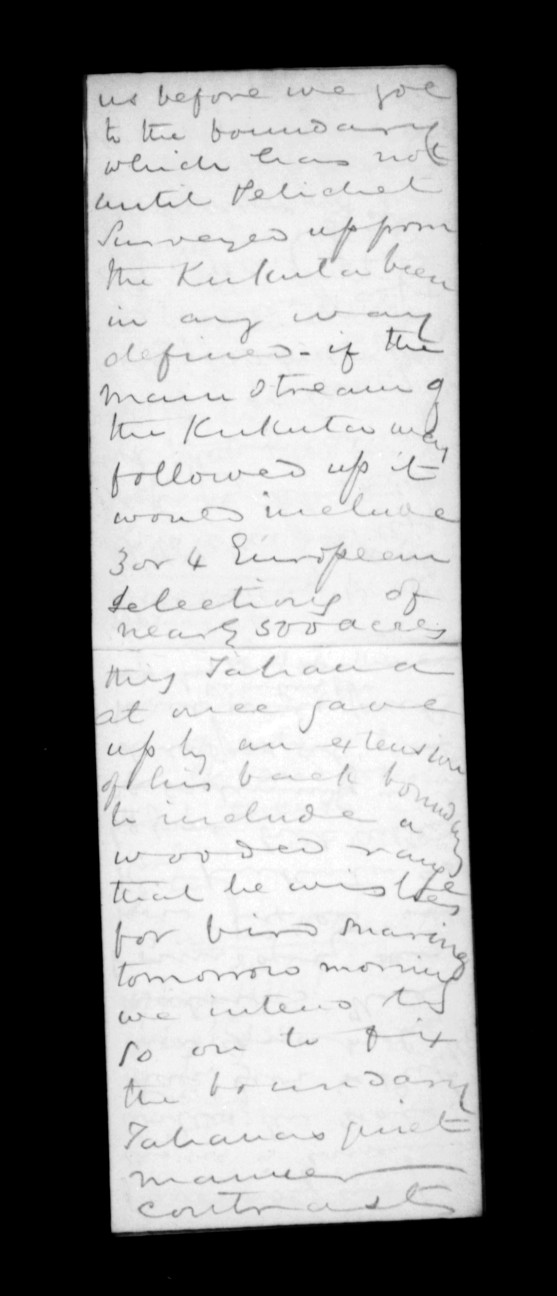 us before we got
to the boundary
which has not
until Pelichet
Surveyed up from
the Kukuta been
in any way
defined - if the
main stream of
the Kukuta was
followed up it
would include
3 or 4 European
Selections of
nearly 500 acres
this Tahana
at once gave
up by an extension
of his back boundary
to include a
wooded range
that he wishes
for bird snaring
tomorrow morning
we intend to
go on to fix
the boundary
Tahanas quiet
manner
contrasts